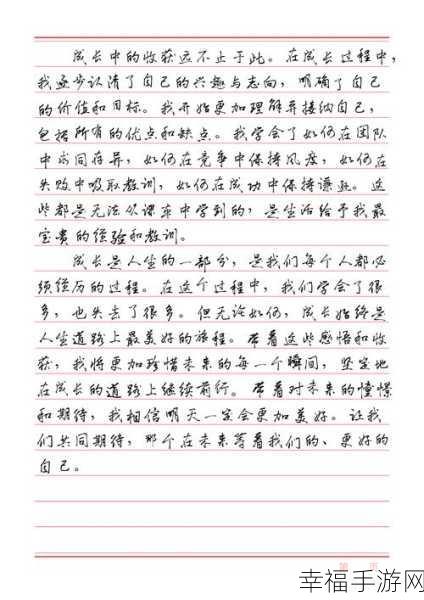 成长中的收获远不止于此。在成长过程中，
我逐步认清了自己的兴趣与志向，明确了自己
的价值和目标。我开始更加理解并接纳自己，
包括所有的优点和缺点。我学会了如何在团队
中求同存异，如何在竞争中保持风度，如何在
失败中吸取教训，如何在成功中保持谦逊。这
些都是无法从课本中学到的，是生活给予我最
宝贵的经验和教训。
成长是人生的一部分，是我们每个人都必
须经历的过程。在这个过程中，我们学会了很
多，也失去了很多。但无论如何，成长始终是
人生道路上最美好的旅程。带着这些感悟和收
获，我将更加珍惜未来的每一个瞬间，坚定地
在成长的道路上继续前行。带着对未来的憧憬
和期待，我相信明天一定会更加美好。让我
们共同期待，那个在未来等着我们的、更好的
自己。
第 页
幸福手游网